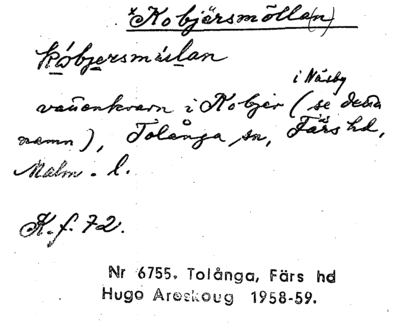 *Kobjärsmöllan(n)
kóbjersmúlan
vattenkvarn i Kobjär (se detta
i Näsby
namn), Tolånga sn, Färs hd,
Malm. l.
K. f. 72.
Nr 6755. Tolånga, Färs hd
Hugo Areskoug 1958-59.